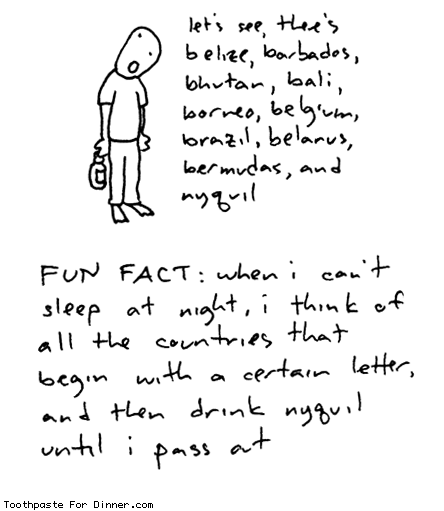 let's see, thee's
belize, barbados,
bhutan, bali,
borneo, belgium,
brazil, belarus,
bermudas, and
nyquil
FUN FACT: when i can't
sleep at night, i think of
all the countries that
begin with a certain letter,
and then drink nyquil
until i pass out
Toothpaste For Dinner.com